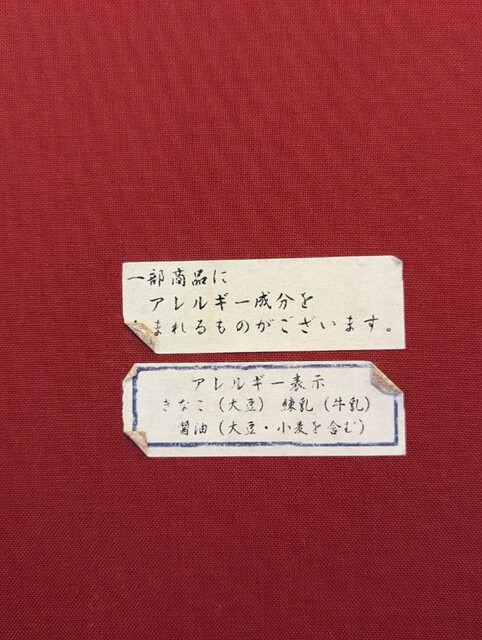 一部商品に
アレルギー成分を
まれるものがございます。
アレルギー表示
きなこ（大豆） 練乳（牛乳）
醤油（大豆・小麦を含む）